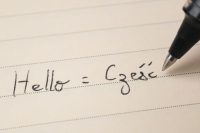 Hello = Cześć